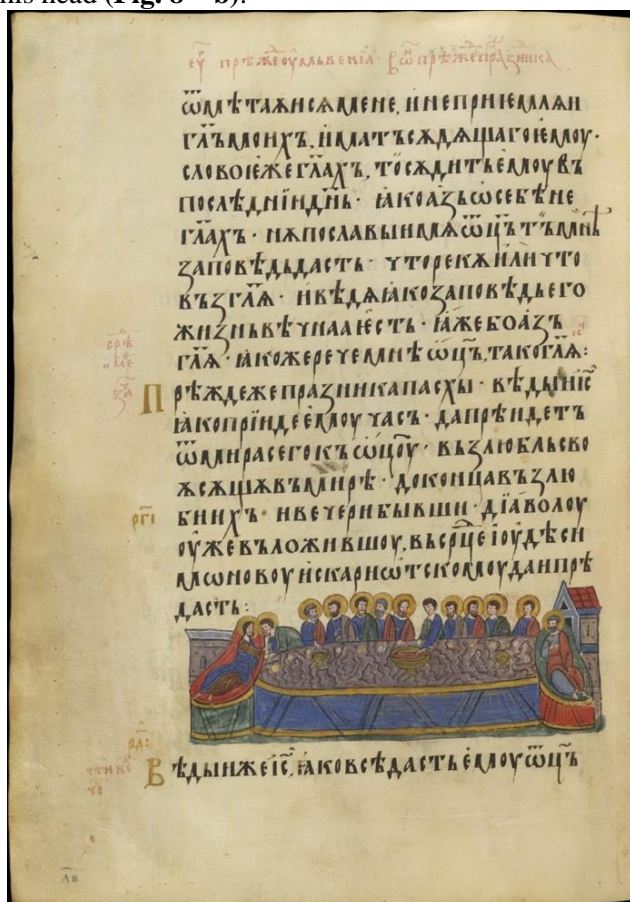 his head (Fig. 8 – b).
ѿмѣтаѧисѧмене, инеприемлѧи
гл҃ъмоихъ, иматъсѫдѧщагоемоу·
словоежегл҃ахъ, тосѫдитьемоувъ
послѣднїидн҃ь· ꙗкоазьѡсебѣне
гл҃ахъ· нѫпославыимѧѡц҃ътъмнѣ
заповѣдьдасть· чторекѫилично
възгл҃ѧ· ивѣдѧꙗкозаповѣдьего
жизньвѣчнааесть· ꙗжебоазъ
гл҃ѧ· ꙗкожеречемнѣѡц҃ъ, такогл҃ѧ:
Прѣждежепразникапасхы· вѣдыиіс҃
ꙗкопрїидеемоучась· дапрѣидетъ
ѿмирасегокъѡц҃оу· възлюбльсво
ѫсѧщѧѧвъмирѣ· доконцавъзлю
биихъ· ивечерибывши· дїаволоу
оужевъложившоу, въсрц҃еіоудѣси
мѡновоуискариѡтскомоудаипрѣ
дасть:
Вѣдыижеіс҃, ꙗковсѣдастьемоуѡц҃ъ